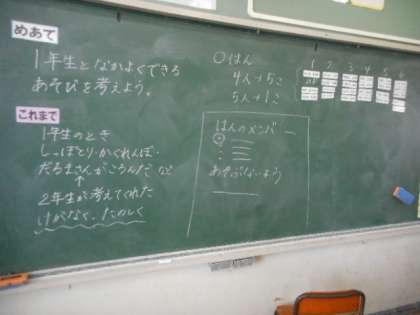 めあて
1年生となかよくできる
あそびを考えよう。
これまで
1年生のとき
しっぽとり・かくれんぼ・
だるまさんがころんだ など
↑
2年生が考えてくれた
けがなく、たのしく
○はん
4人→5こ
5人→1こ
はんのメンバー
あそびのないよう
1 2 3 4 5 6